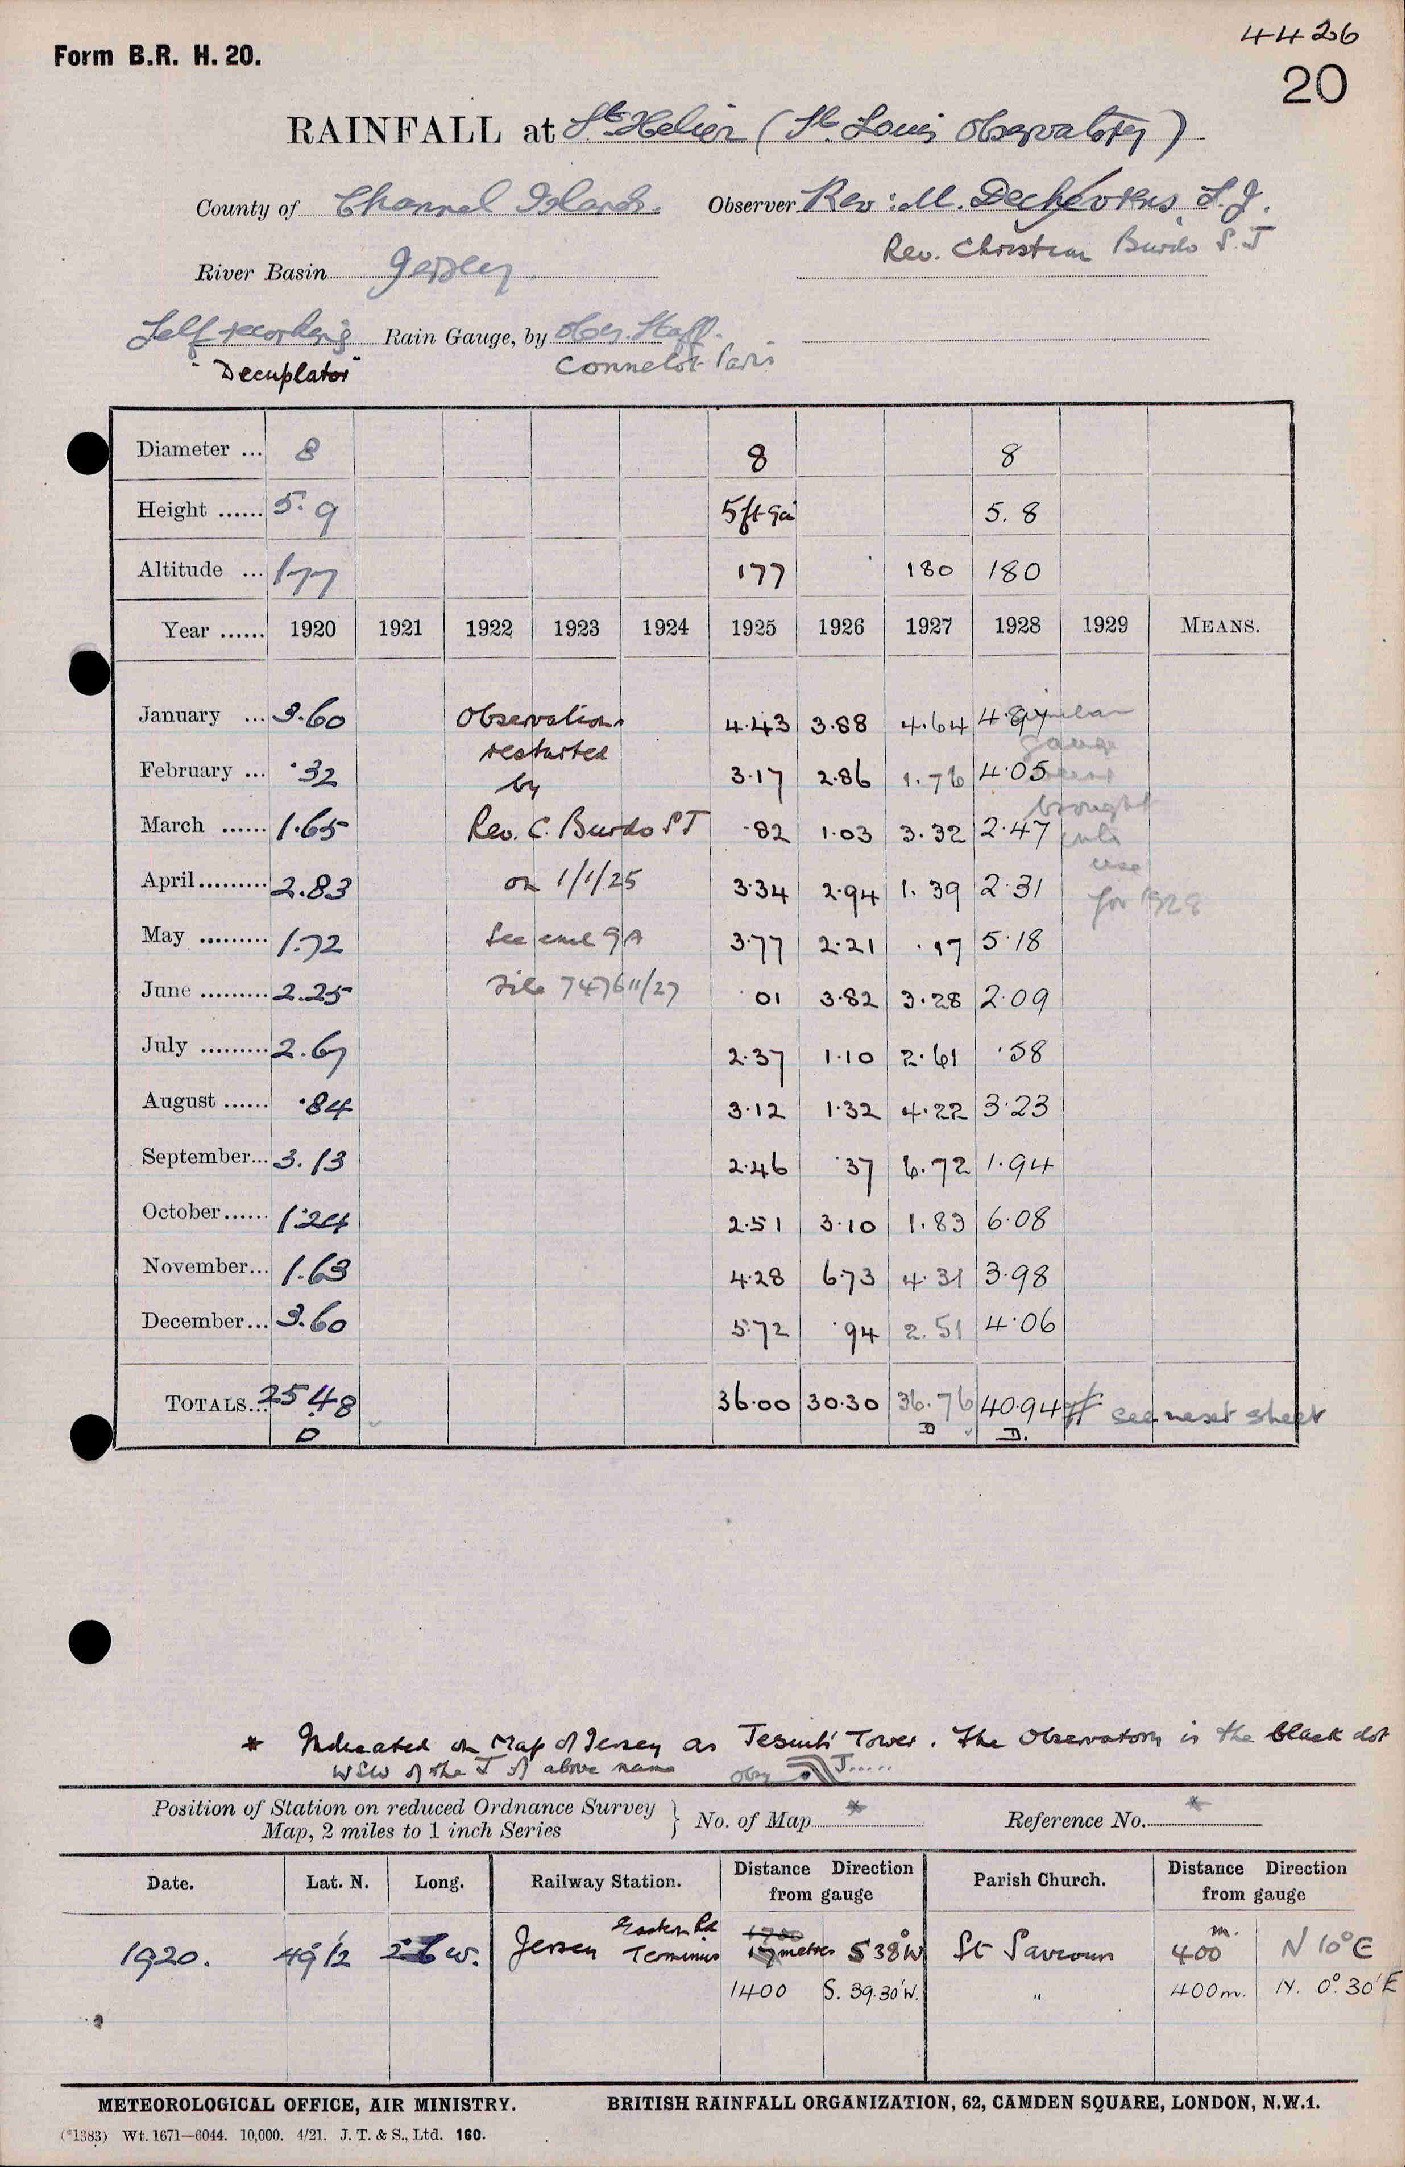 4426
Form B.R. H. 20.
20
RAINFALL at St Helier (St. Louis Observatory)
County of Channel Islands. Observer Rev: M. Dechevrens, S.J.
Rev. Christian Burdo S.J
River Basin Jersey
Self recording Rain Gauge, by Obsy. Staff.
"Decuplator" Paris
Diameter ... 8 8 8
Height ...... 5. 9 5ft 9in 5. 8
Altitude ... 177 177 180 180
Year ...... 1920 1921 1922 1923 1924 1925 1926 1927 1928 1929 MEANS.
January ... 3.60 Observations 4.43 3.88 4.64 4.97 similar
restarted gauge
February ... .32 by 3.17 2.86 1.76 4.05
brought
March ...... 1.65 Rev. C. Burdo SJ .82 1.03 3.32 2.47 into
use
April ......... 2.83 on 1/1/25 3.34 2.94 1.39 2.31 for 1928
May ......... 1.72 See encl 9A 3.77 2.21 .17 5.18
June ......... 2.25 File 747611/27 .01 3.82 3.28 2.09
July ......... 2.67 2.37 1.10 2.61 .58
August ...... .84 3.12 1.32 4.22 3.23
September... 3.13 2.46 .37 6.72 1.94
October ...... 1.24 2.51 3.10 1.83 6.08
November... 1.63 4.28 6.73 4.31 3.98
December... 3.60 5.72 .94 2.51 4.06
TOTALS... 25.48 36.00 30.30 36.76 40.94 # see next sheet
D D D.
* Indicated on Map of Jersey as Jesuits' Tower. The Observatory is the black dot
WSW of the J of above name Obsy J.....
Position of Station on reduced Ordnance Survey Map, 2 miles to 1 inch Series } No. of Map * Reference No. *
Date. Lat. N. Long. Railway Station. Distance Direction from gauge Parish Church. Distance Direction from gauge
1920. 49° 12' W. Jersey Eastern Rd Terminus metres S 38° W St Saviour 400 m. N 10° E
1400 S. 39.30' W. " 400 m. N. 0° 30' E
METEOROLOGICAL OFFICE, AIR MINISTRY. BRITISH RAINFALL ORGANIZATION, 62, CAMDEN SQUARE, LONDON, N.W.1.
(*1383) Wt. 1671—6044. 10,000. 4/21. J. T. & S., Ltd. 160.